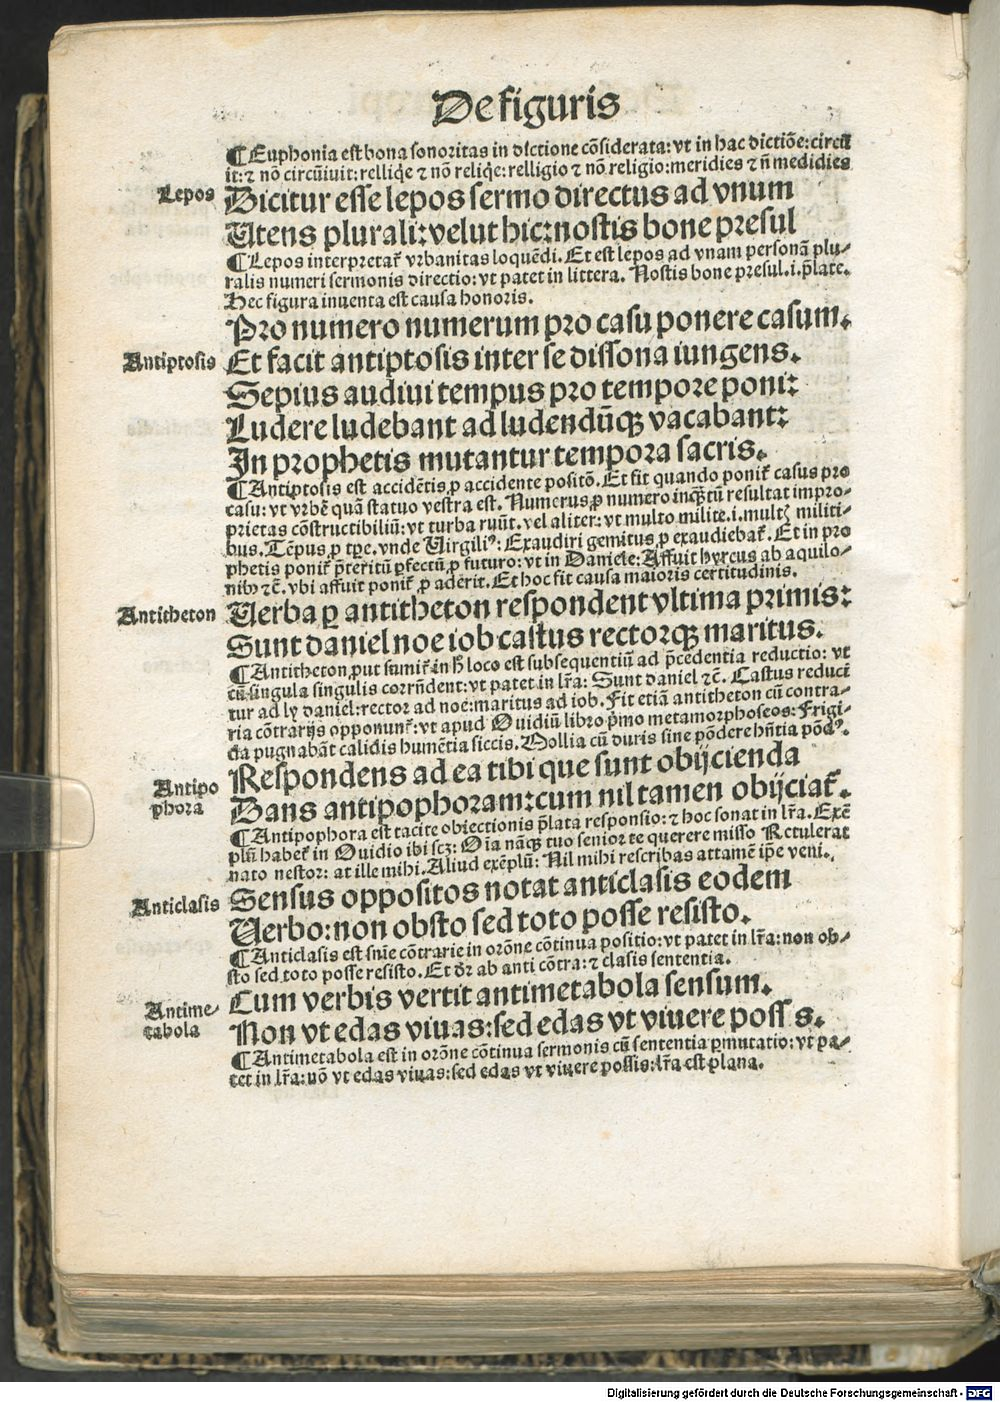 De figuris
¶Euphonia est bona sonoritas in dictione cōsiderata: vt in hac dictiōe: circū
it: ⁊ nō circūiuit: relliq̄e ⁊ nō reliq̄e: relligio ⁊ nō religio: meridies ⁊ n̄ medidies
Lepos Dicitur esse lepos sermo directus ad vnum
Utens plurali: velut hic: nostis bone presul
¶Lepos interpretat᷑ vrbanitas loquēdi. Et est lepos ad vnam personā plu-
ralis numeri sermonis directio: vt patet in littera. Nostis bone presul .i. p̄late.
Hec figura inuenta est causa honoris.
Pro numero numerum pro casu ponere casum.
Antiptosis Et facit antiptosis inter se dissona iungens.
Sepius audiui tempus pro tempore poni:
Ludere ludebant ad ludendūqꝫ vacabant:
In prophetis mutantur tempora sacris.
¶Antiptosis est accidētis ꝓ accidente positō. Et fit quando ponit᷑ casus pro
casu: vt vrbē quā statuo vestra est. Numerus ꝓ numero inqꝫtū resultat impro-
prietas cōstructibiliū: vt turba ruūt. vel aliter: vt multo milite .i. multꝭ militi-
bus. Tēpus ꝓ tp̄e. vnde Virgiliꝰ: Exaudiri gemitus ꝓ exaudiebat᷑. Et in pro
phetis ponit᷑ p̄teritū ꝑfectū ꝓ futuro: vt in Daniele: Affuit hyrcus ab aquilo-
nibꝫ ⁊c̄. vbi affuit ponit᷑ ꝓ aderit. Et hoc fit causa maioris certitudinis.
Antitheton Uerba ꝑ antitheton respondent vltima primis:
Sunt daniel noe iob castus rectorqꝫ maritus.
¶Antitheton ꝓut sumit᷑ in h̄ loco est subsequentiū ad p̄cedentia reductio: vt
cū singula singulis corrn̄dent: vt patet in lr̄a: Sunt daniel ⁊c̄. Castus reducit᷑
tur ad ly daniel: rector ad noe: maritus ad iob. Fit etiā antitheton cū contra-
ria cōtrarijs opponunt᷑: vt apud Ouidiū libro p̄mo metamorphoseos: Frigi-
da pugnabāt calidis humētia siccis. Mollia cū duris sine pōdere hn̄tia pōdꝰ.
Antipo
phora Respondens ad ea tibi que sunt obijcienda
Dans antipophoram: cum nil tamen obijciat᷑.
¶Antipophora est tacite obiectionis p̄lata responsio: ⁊ hoc sonat in lr̄a. Exē
plū habet᷑ in Ouidio ibi scꝫ: Oīa nāqꝫ tuo senior te querere misso Retulerat
nato nestor: at ille mihi. Aliud exēplū: Nil mihi rescribas attamē ip̄e veni.
Anticlasis Sensus oppositos notat anticlasis eodem
Uerbo: non obsto sed toto posse resisto.
¶Anticlasis est sn̄ie cōtrarie in orōne cōtinua positio: vt patet in lr̄a: non ob-
sto sed toto posse resisto. Et dr̄ ab anti cōtra: ⁊ clasis sententia.
Antime-
tabola Cum verbis vertit antimetabola sensum.
Non vt edas viuas: sed edas vt viuere poss s.
¶Antimetabola est in orōne cōtinua sermonis cū sententia ꝑmutatio: vt pa-
tet in lr̄a: nō vt edas viuas: sed edas vt viuere possis: lr̄a est plana.
Digitalisierung gefördert durch die Deutsche Forschungsgemeinschaft - DFG